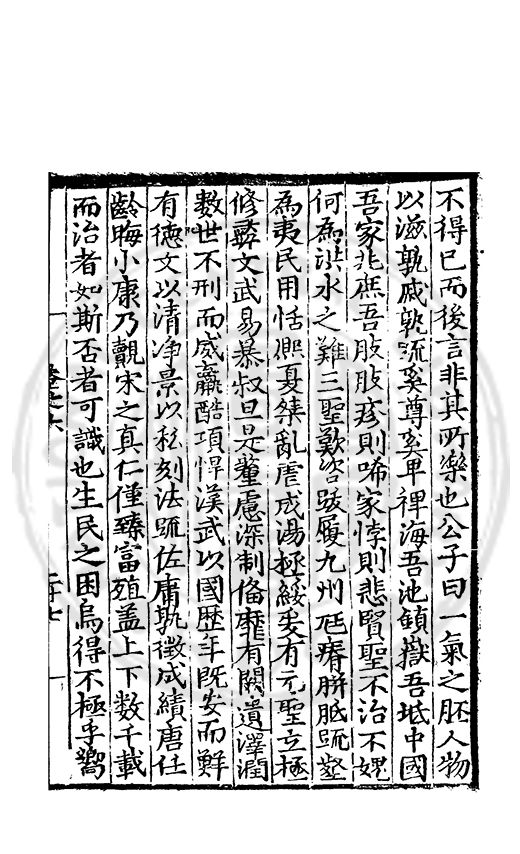 不得已而後言非其所樂也公子曰一氣之胚人物
以滋孰戚孰疏奚尊奚卑裨海吾池鎮嶽吾坻中國
吾家兆庶吾肢肢疹則唏家悖則悲賢聖不治不媿
何為洪水之難三聖歎咨跋履九州尫瘠胼胝疏鑿
為夷民用恬熈夏桀亂虐成湯極綏爰有元聖立極
修彞文武易暴叔旦是釐慮深制備靡有闕遺澤潤
數世不刑而威嬴酷項悍漢武以國歴年既安而鮮
有徳文以清净景以刻法疏佐庸孰徴成績唐任
齡晦小康乃覿宋之真仁僅臻富殖盖上下數千載
而治者如斯否者可識也生民之困烏得不極乎嚮
卷之六
二十七